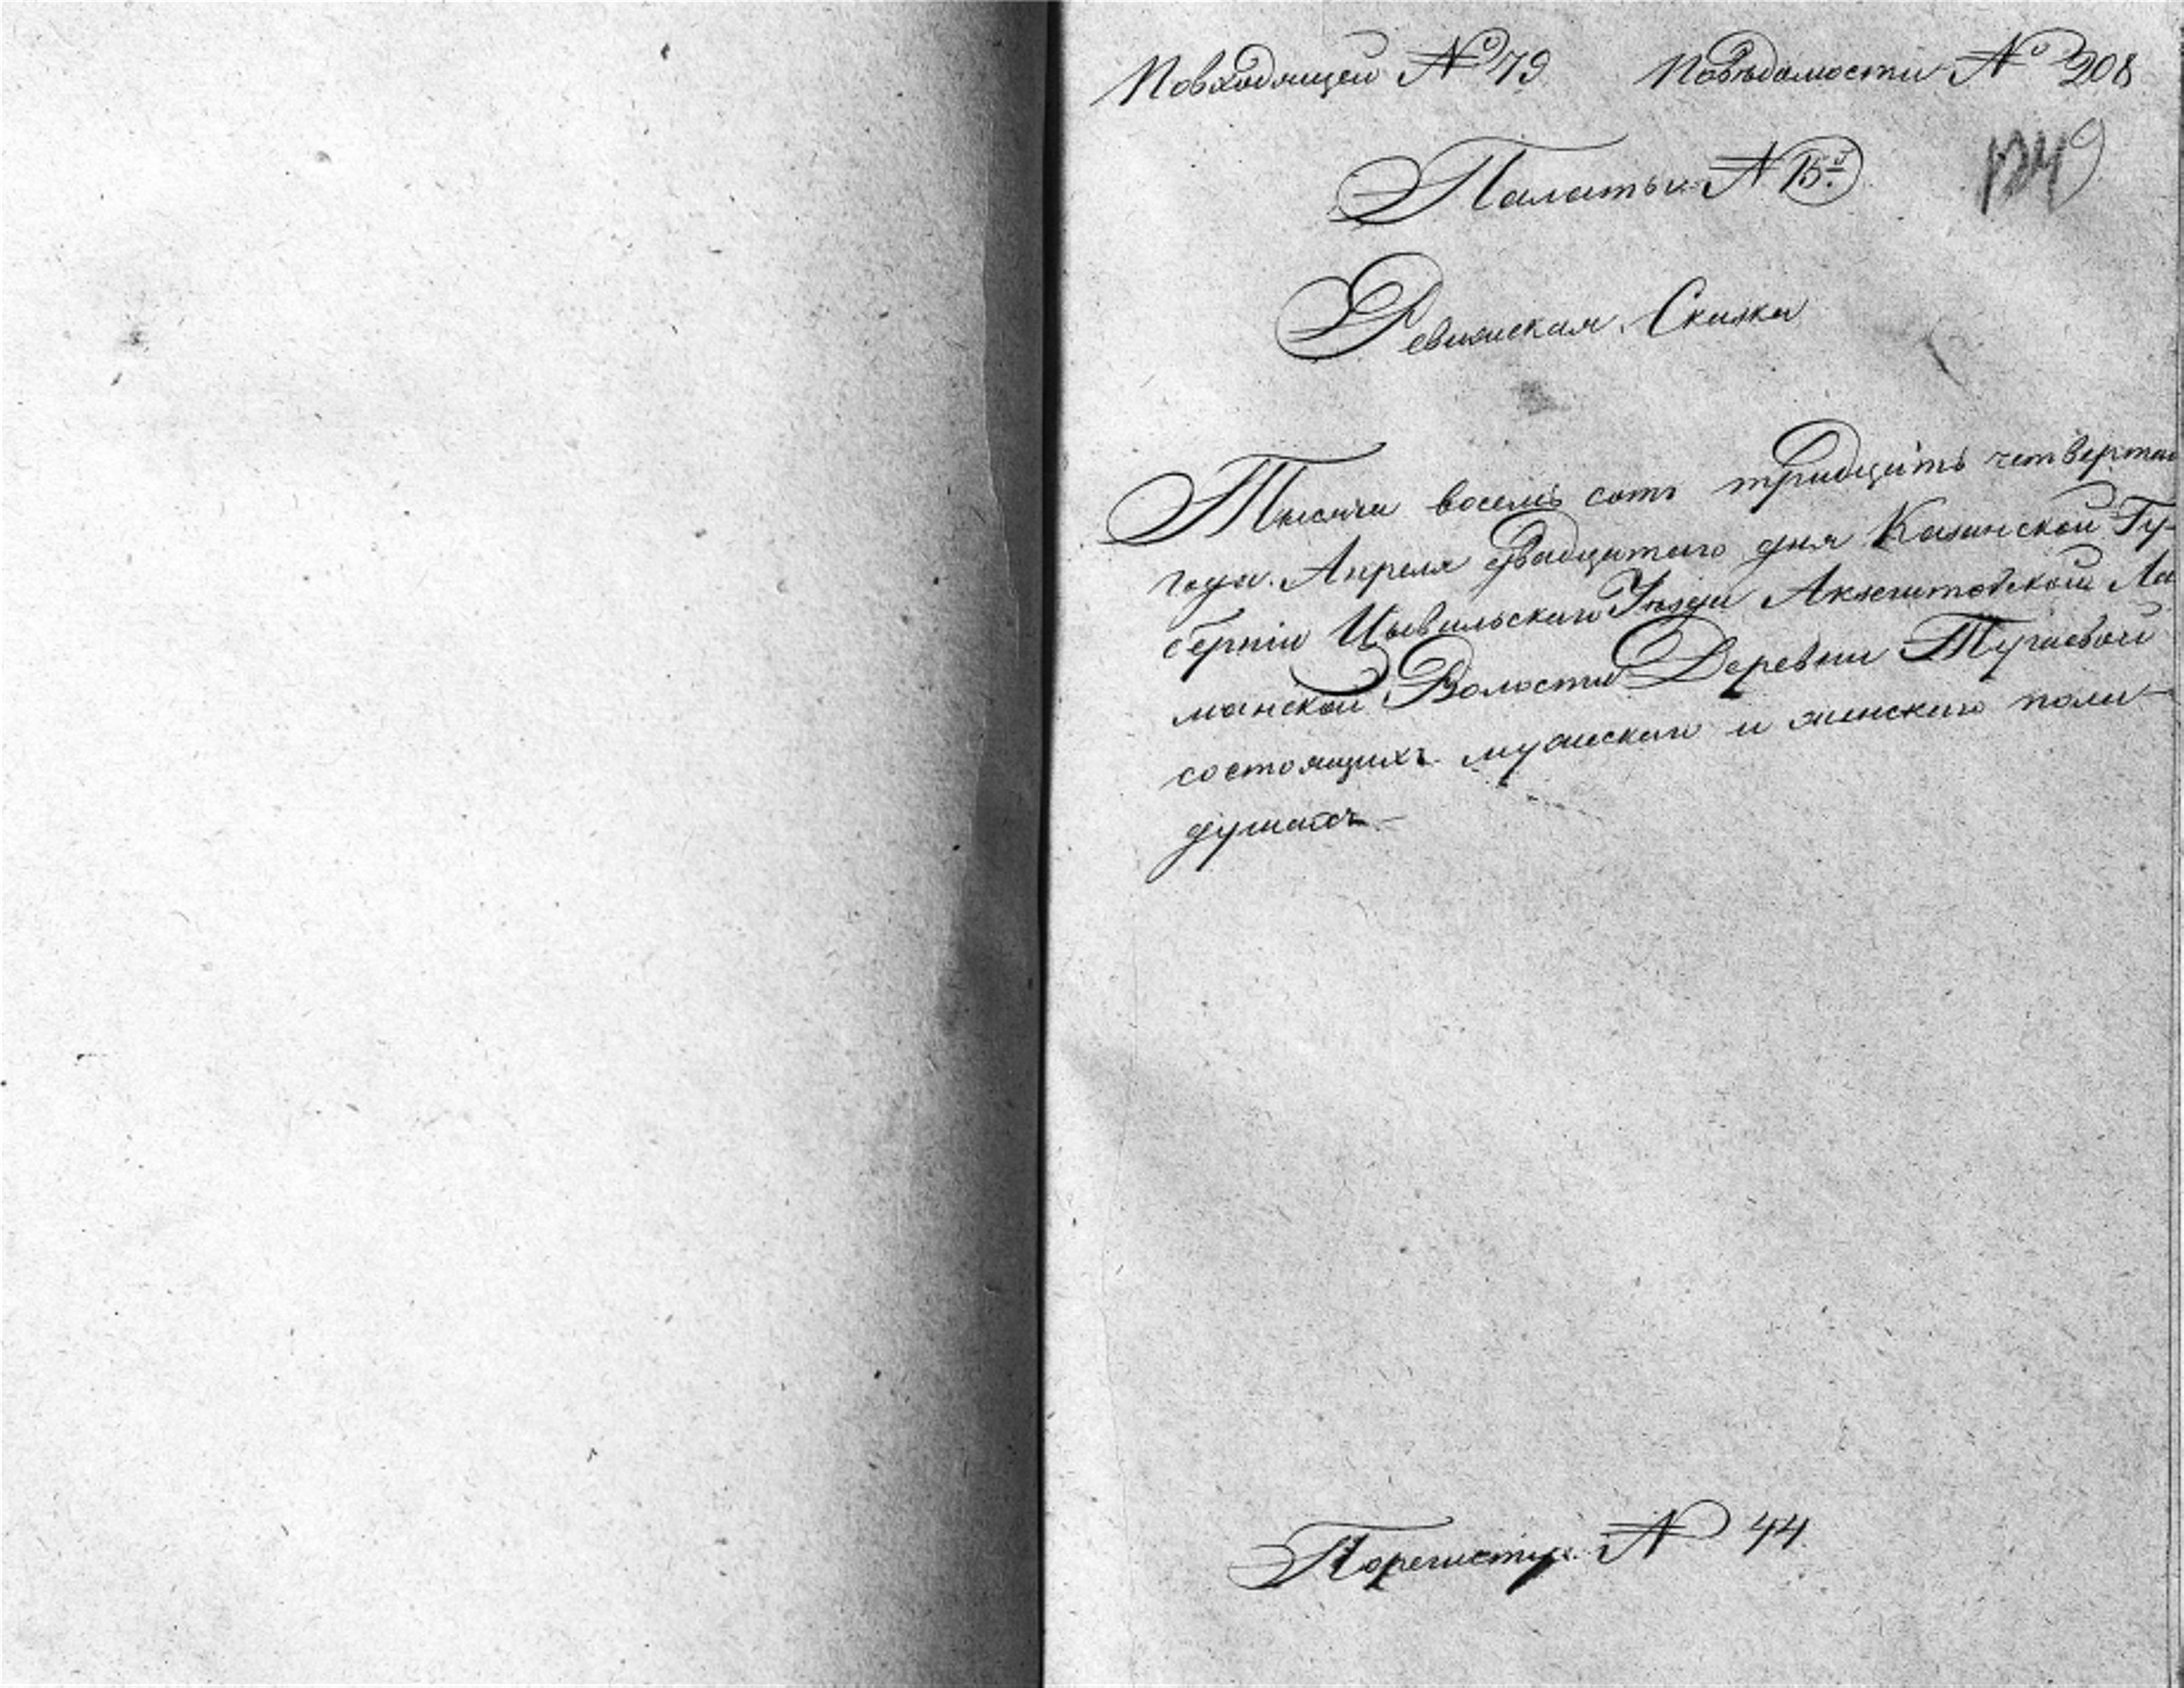 Повходящей № 79 Повѣдомости № 208
Палаты № 15й
Ревижская Скаска
Тысяча восемь сотъ тридцать четвертаго
года. Апреля двадцатаго дня Казанской Гу-
берніи Цывильскаго Уѣзда Акзегитовской Ла
манской Волости Деревни Тугаевой
состоящихъ мужскаго и женскаго пола
душахъ
Порегистру № 44